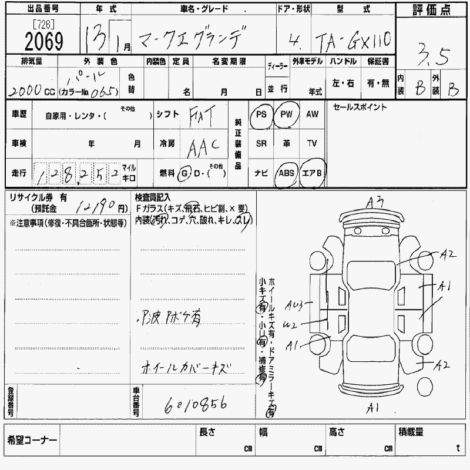 出品番号 年式 車名・グレード ドア・形状 型式 評価点
[726]
2069 13年 1月 マークⅡグランデ 4. TA-GX110 3.5
排気量 外装色 内装色 定員 名変期限 ディーラー 外車モデル ハンドル 保証書 内装 B 外装 B
2000cc パール (カラーNo.065) 色替 名 月 日 並行 年式 左・右 有・無
車歴 自家用・レンタ・(その他) シフト FAT 純正装備品 PS PW AW セールスポイント
車検 年 月 冷房 AAC SR 革 TV
走行 128,252 マイル キロ 燃料 G・D・(その他) ナビ ABS エアB
リサイクル券 有 (預託金 12190円)
※注意事項(修復・不具合箇所・状態等)
検査員記入
Fガラス(キズ、飛石、ヒビ割、×要)
内装(汚れ、コゲ、穴、破れ、キレ、スレ)
小キズ(有)・小凹(有)・補修(有)
ホイールキズ有・ドアミラーキズ有
ホイールカバーキズ
A3
A2
A1
AU3
U2
A1
A2
A1
登録番号 車台番号 6010856
希望コーナー 長さ cm 幅 cm 高さ cm 積載量 t